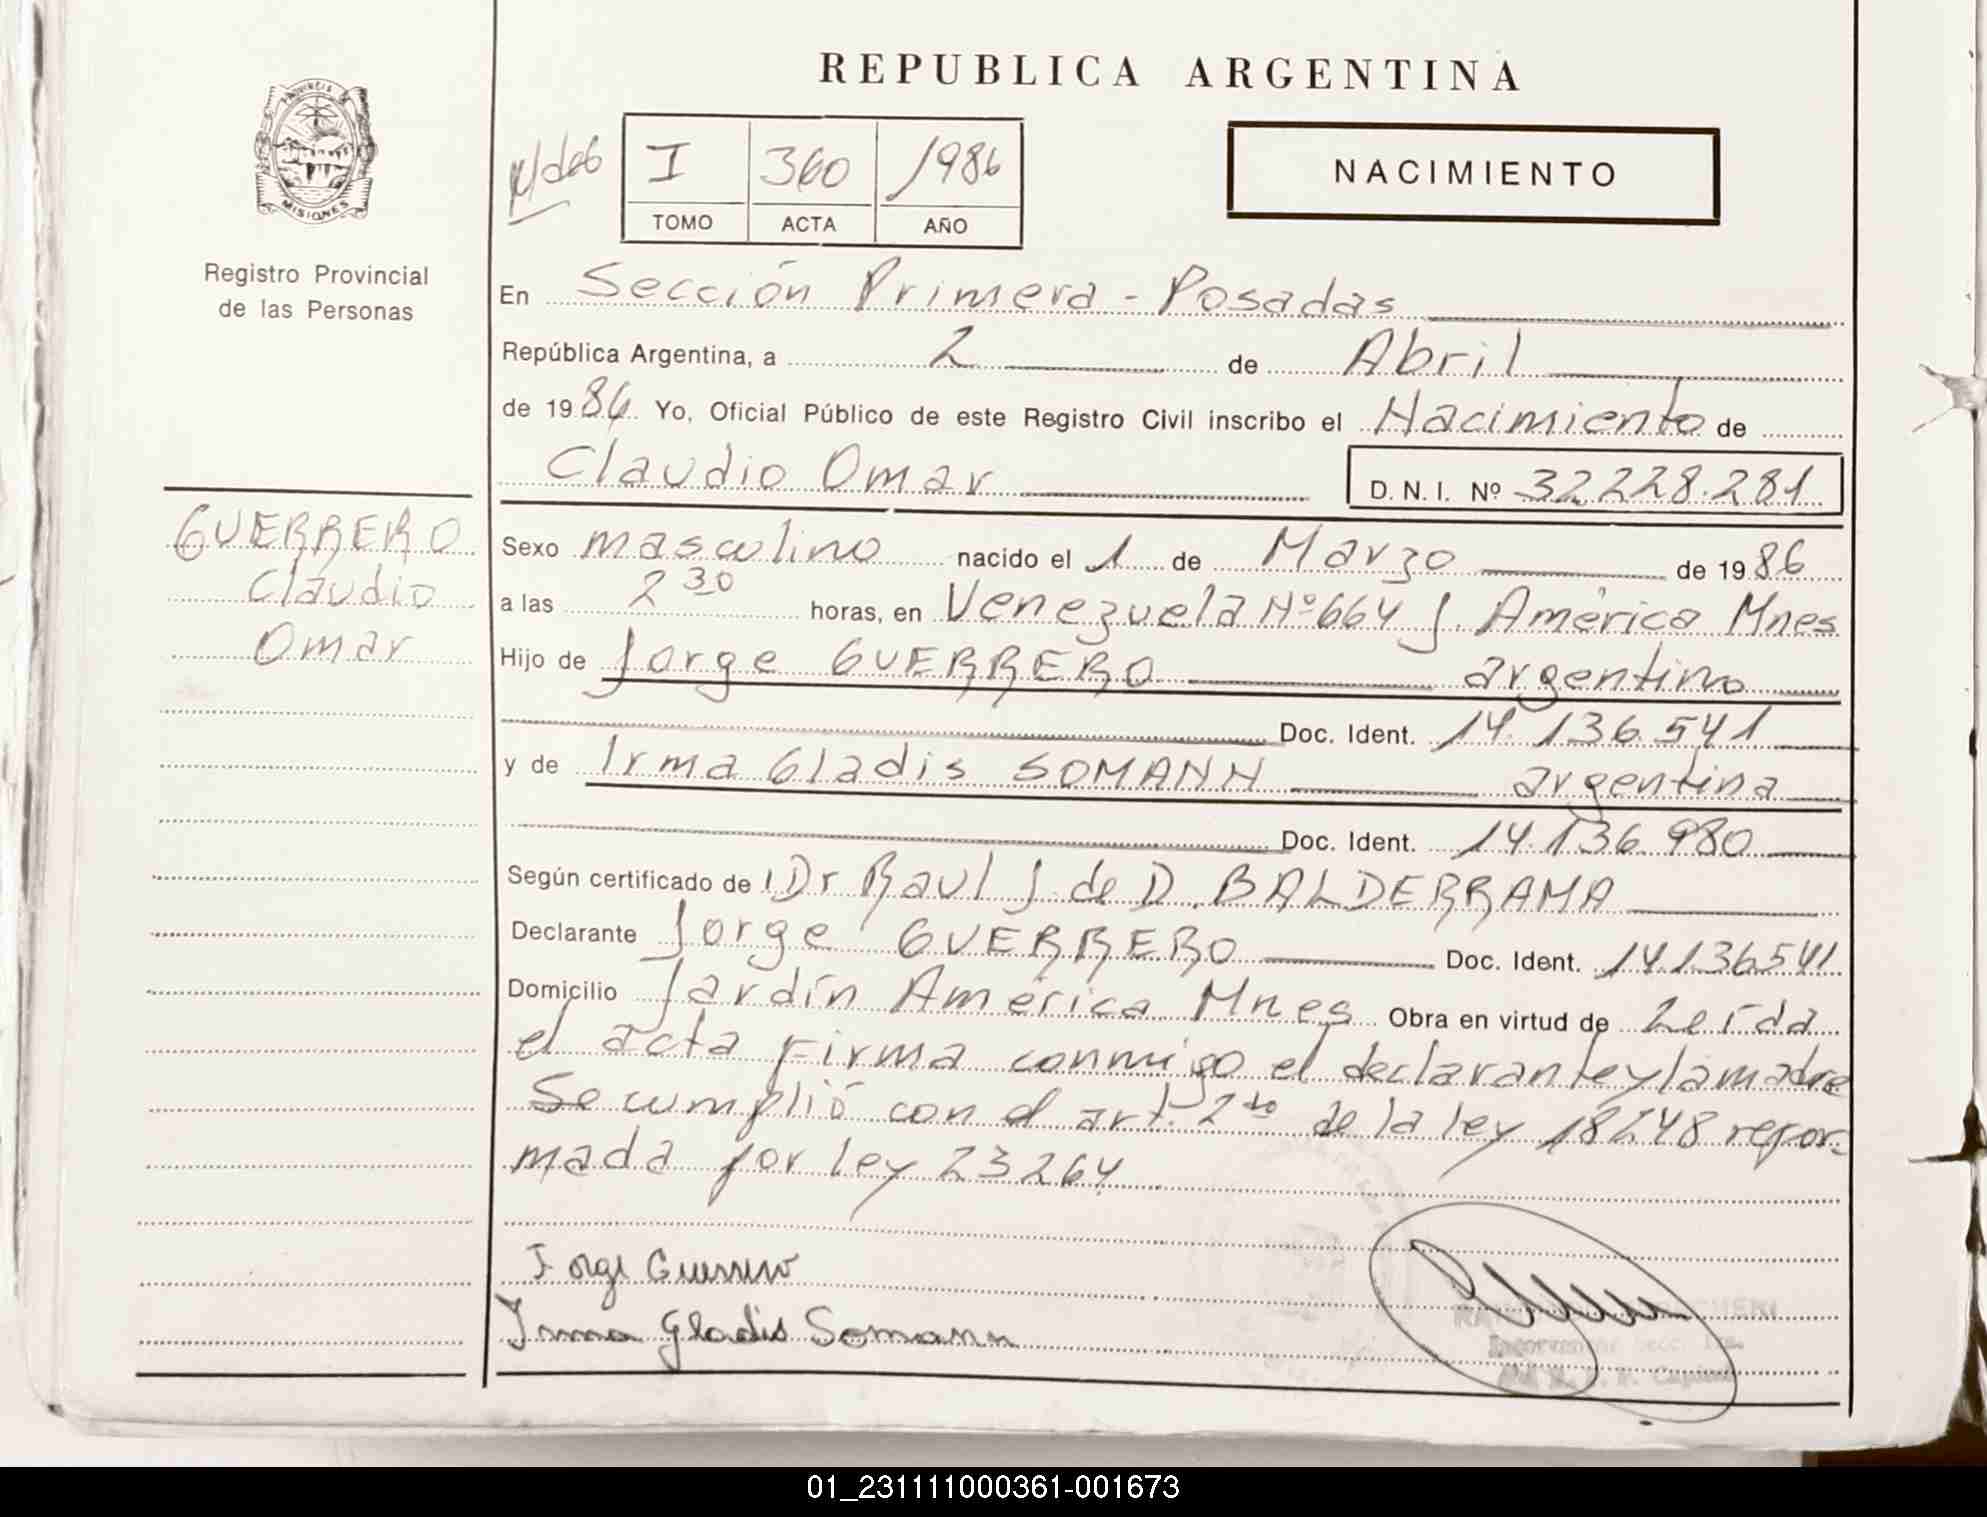 REPUBLICA ARGENTINA
PROVINCIA DE
MISIONES
Registro Provincial
de las Personas
I 360 1986
TOMO ACTA AÑO
NACIMIENTO
En Sección Primera - Posadas
República Argentina, a 2 de Abril
de 1986 Yo, Oficial Público de este Registro Civil inscribo el Nacimiento de
Claudio Omar D. N. I. Nº 32.228.281
GUERRERO
Claudio
Omar
Sexo masculino nacido el 1 de Marzo de 1986
a las 2 30 horas, en Venezuela Nº 664 J. América Mnes
Hijo de Jorge GUERRERO argentino
Doc. Ident. 14.136.541
y de Irma Gladis SOMANN argentina
Doc. Ident. 14.136.980
Según certificado de Dr Raul J. de D. BALDERRAMA
Declarante Jorge GUERRERO Doc. Ident. 14.136541
Domicilio Jardín América Mnes Obra en virtud de Leída
el acta firma conmigo el declarante y la madre
Se cumplió con el art. 2do de la ley 18248 refor-
mada por ley 23264
Jorge Guerrero
Irma Gladis Somann
01_231111000361-001673